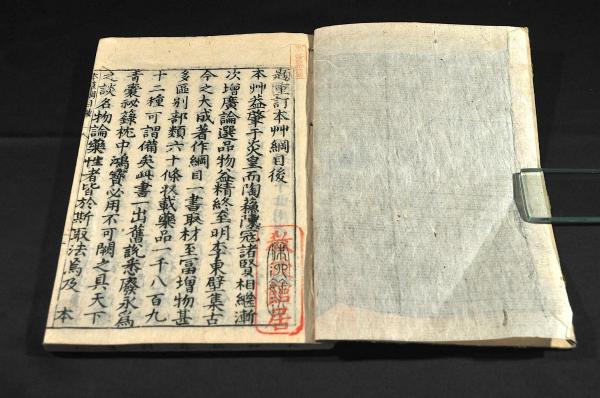 題重訂本艸綱目後
本艸益肇于炎皇而陶蘇陳寇諸賢相繼漸
次增廣論選品物益精終至明李東壁集古
今之大成著作綱目一書取材至富增物甚
多區別部類六十條狀載藥品一千八百九
十二種可謂備矣此書一出舊說悉廢永為
青囊祕錄枕中鴻寶必用不可闕之具天下
之談名物論藥性者皆於斯取法焉及 本